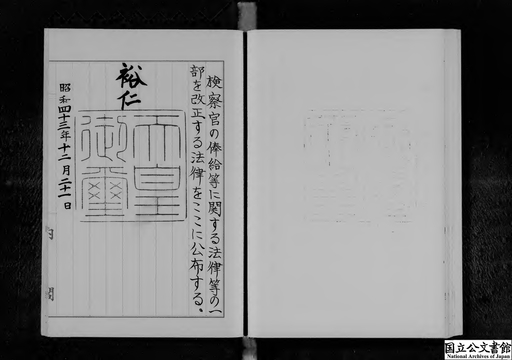 検察官の俸給等に関する法律等の一
部を改正する法律をここに公布する。
裕仁
天皇
御璽
昭和四十三年十二月二十一日
内閣
国立公文書館
National Archives of Japan